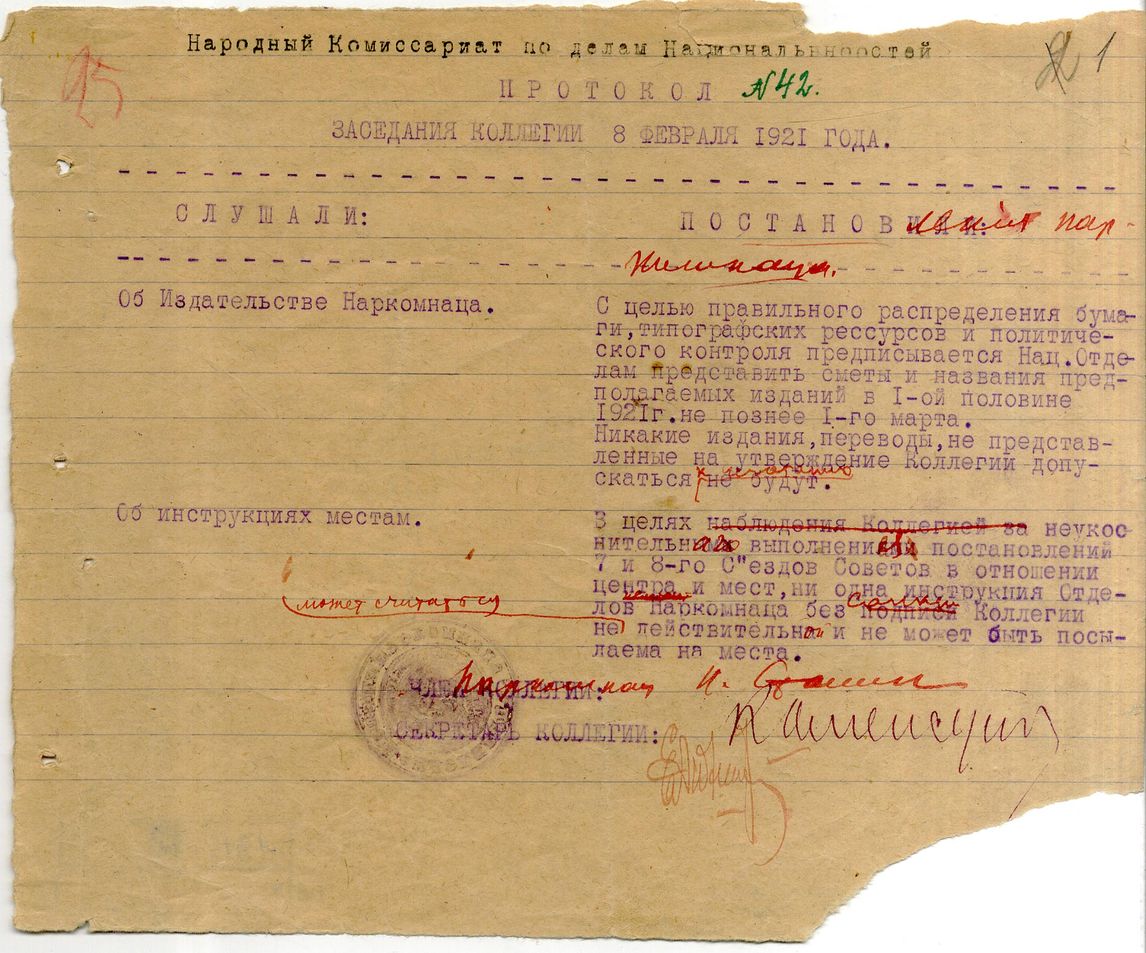 Народный Комиссариат по делам Национальностей
95
2 1
ПРОТОКОЛ №42.
ЗАСЕДАНИЯ КОЛЛЕГИИ 8 ФЕВРАЛЯ 1921 ГОДА.
СЛУШАЛИ:
ПОСТАНОВИЛИ:
Об Издательстве Наркомнаца.
С целью правильного распределения бума-
ги,типографских рессурсов и политиче-
ского контроля предписывается Нац.Отде-
лам представить сметы и названия пред-
полагаемых изданий в I-ой половине
1921г.не познее I-го марта.
Никакие издания,переводы,не представ-
ленные на утверждение Коллегии допу-
скаться не будут.
Об инструкциях местам.
В целях наблюдения Коллегией за неукос
нительным выполнением постановлений
7 и 8-го С"ездов Советов в отношении
центра и мест,ни одна инструкция Отде-
(может считаться
лов Наркомнаца без подписи Коллегии
не действительна и не может быть посы-
лаема на места.
ЧЛЕН КОЛЛЕГИИ: И. Сталин
СЕКРЕТАРЬ КОЛЛЕГИИ: Каменский